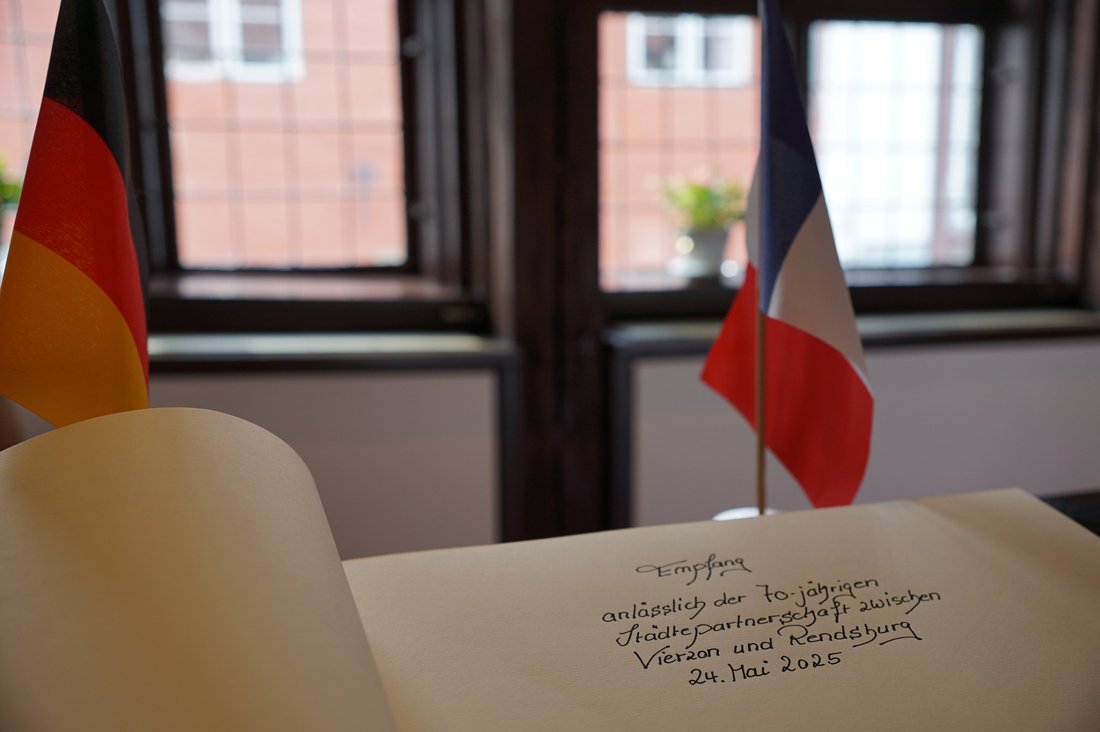 Empfang
anlässlich der 70-jährigen
Städtepartnerschaft zwischen
Vierzon und Rendsburg
24. Mai 2025